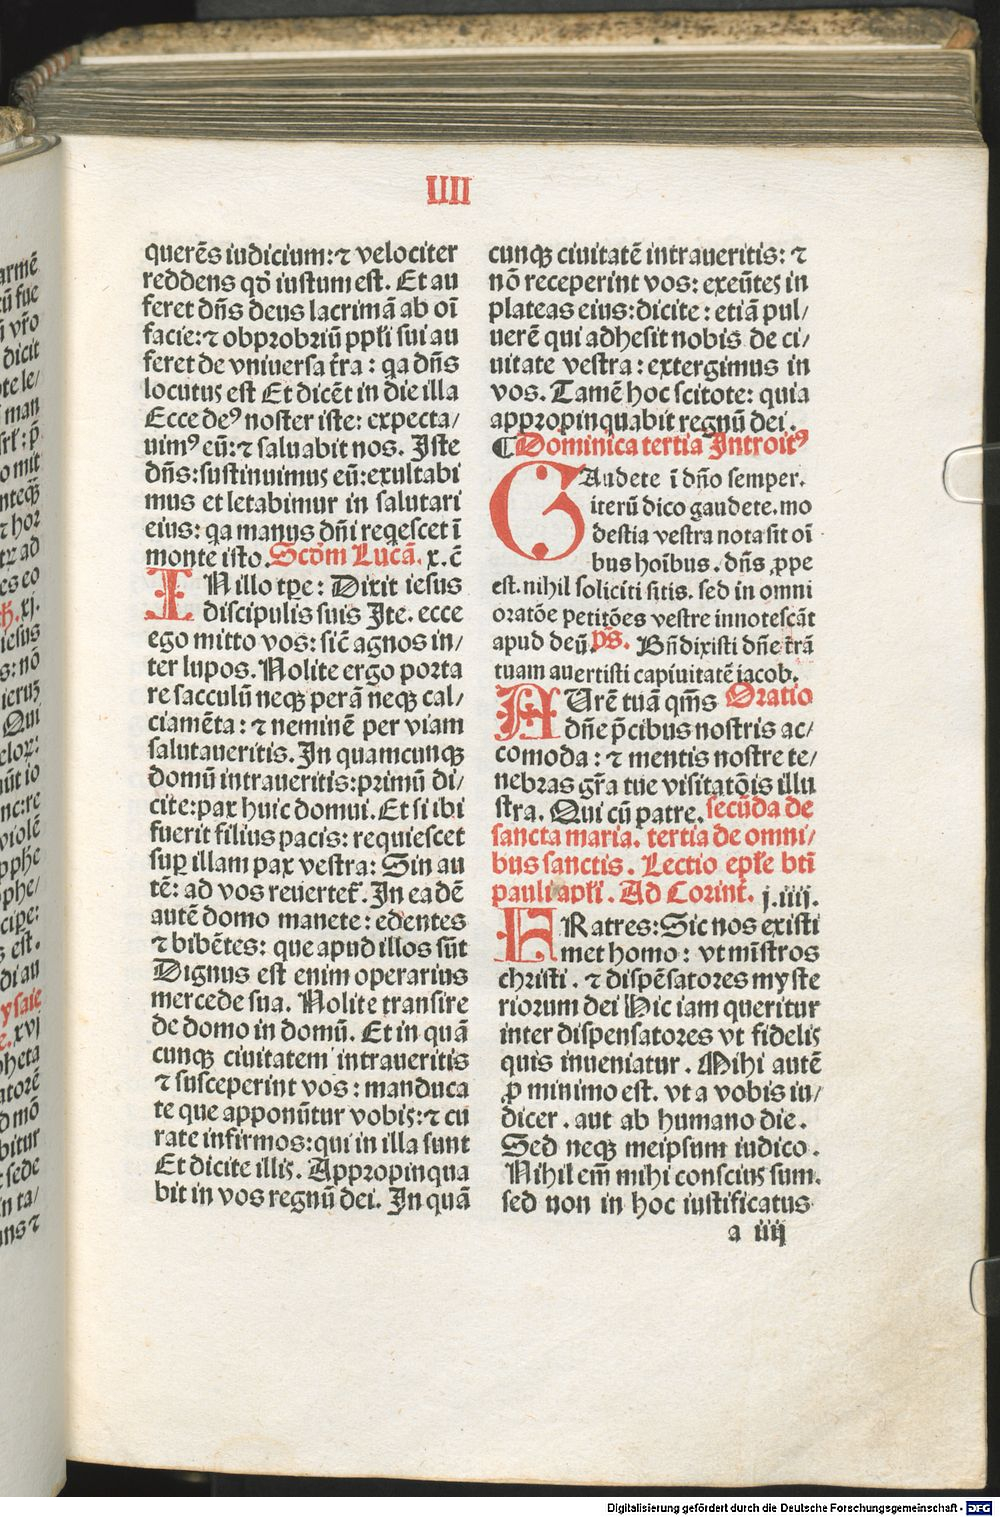 IIII
querēs iudicium: ⁊ velociter
reddens qđ iustum est. Et au
feret dn̄s deus lacrimā ab oī
facie: ⁊ obprobriū ppłi sui au
feret de vniuersa t̄ra: qa dn̄s
locutus est Et dicēt in die illa
Ecce deꝰ noster iste: expecta/
uimꝰ eū: ⁊ saluabit nos. Iste
dn̄s: sustinuimus eū: exultabi
mus et letabimur in salutari
eius: qa manus dn̄i reqescet ī
monte isto. Scd̄m Lucā. x. c̄
IN illo tp̄e: Dixit iesus
discipulis suis Ite. ecce
ego mitto vos: sic̄ agnos in/
ter lupos. Nolite ergo porta
re sacculū neqꝫ perā neqꝫ cal/
ciamēta: ⁊ neminē per viam
salutaueritis. In quamcunqꝫ
domū intraueritis: primū di/
cite: pax huic domui. Et si ibi
fuerit filius pacis: requiescet
suꝑ illam pax vestra: Sin au
tē: ad vos reuertet᷑. In eadē
autē domo manete: edentes
⁊ bibētes: que apud illos sūt
Dignus est enim operarius
mercede sua. Nolite transire
de domo in domū. Et in quā
cunqꝫ ciuitatem intraueritis
⁊ susceperint vos: manduca
te que apponūtur vobis: ⁊ cu
rate infirmos: qui in illa sunt
Et dicite illis. Appropinqua
bit in vos regnū dei. In quā
cunqꝫ ciuitatē intraueritis: ⁊
nō receperint vos: exeūtes in
plateas eius: dicite: etiā pul/
uerē qui adhesit nobis de ci/
uitate vestra: extergimus in
vos. Tamē hoc scitote: quia
appropinquabit regnū dei.
¶ Dominica tertia Introitꝰ
GAudete ī dn̄o semper.
iterū dico gaudete. mo
destia vestra nota sit oī
bus hoībus. dn̄s ꝓpe
est. nihil soliciti sitis. sed in omni
oratōe petitōes vestre innotescāt
apud deū. ps̄. Bn̄dixisti dn̄e t̄rā
tuam auertisti capiuitatē iacob.
AUrē tuā qm̄s Oratio
dn̄e p̄cibus nostris ac/
comoda: ⁊ mentis nostre te/
nebras gr̄a tue visitatōis illu
stra. Qui cū patre. secūda de
sancta maria. tertia de omni/
bus sanctis. Lectio epłe btī
pauli apłi. Ad Corint̄. j. iiij.
FRatres: Sic nos existi
met homo: vt mīstros
christi. ⁊ dispēsatores myste
riorum dei Hic iam queritur
inter dispensatores vt fidelis
quis inueniatur. Mihi autē
ꝓ minimo est. vt a vobis iu/
dicer. aut ab humano die.
Sed neqꝫ meipsum iudico.
Nihil em̄ mihi conscius sum.
sed non in hoc iustificatus
a iiij
Digitalisierung gefördert durch die Deutsche Forschungsgemeinschaft - DFG